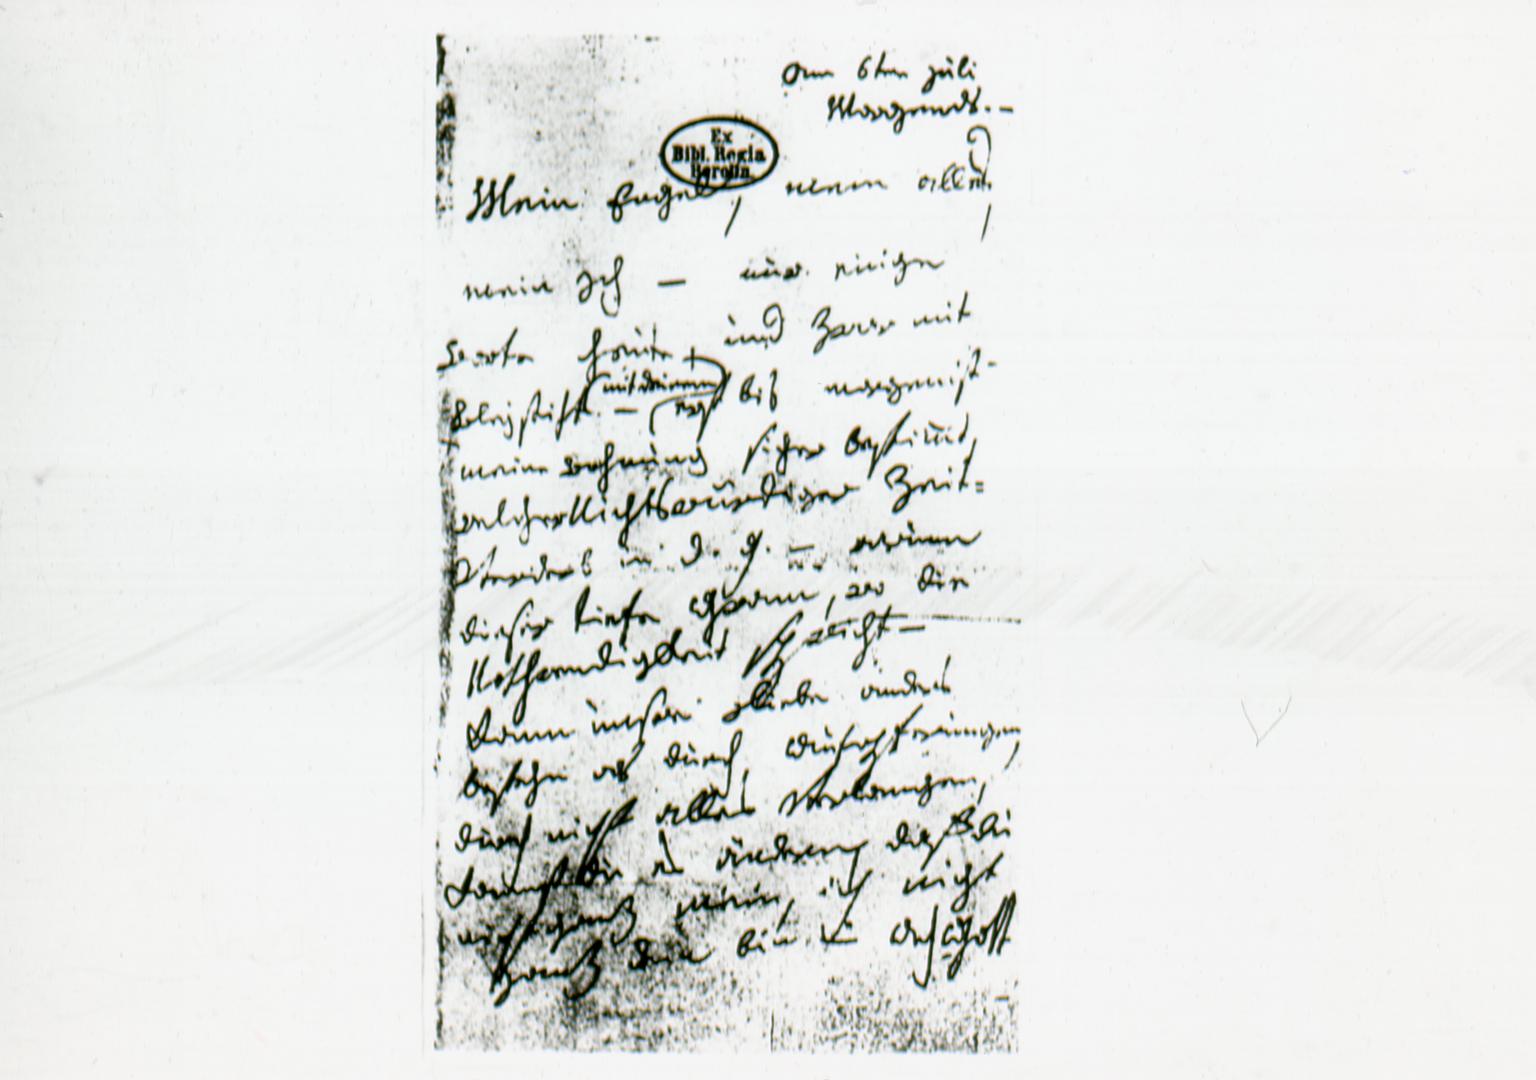 am 6ten Juli
Morgends. –
Ex
Bibl. Regia
Berolin.
Mein Engel, mein alles,
mein Ich – nur einige
Worte heute, und zwar mit
Bleystift – (mit deinem)
erst bis morgen ist
meine wohnung sicher bestimt,
welcher Nichtswürdiger Zeit=
Verderb in d. g. – warum
dieser tiefe Gram, wo die
Nothwendigkeit spricht –
Kann unsre Liebe anders
bestehn als durch Aufopferungen,
durch nicht alles verlangen,
kannst du es ändern, daß du
nicht ganz mein, ich nicht
ganz dein bin – Ach Gott